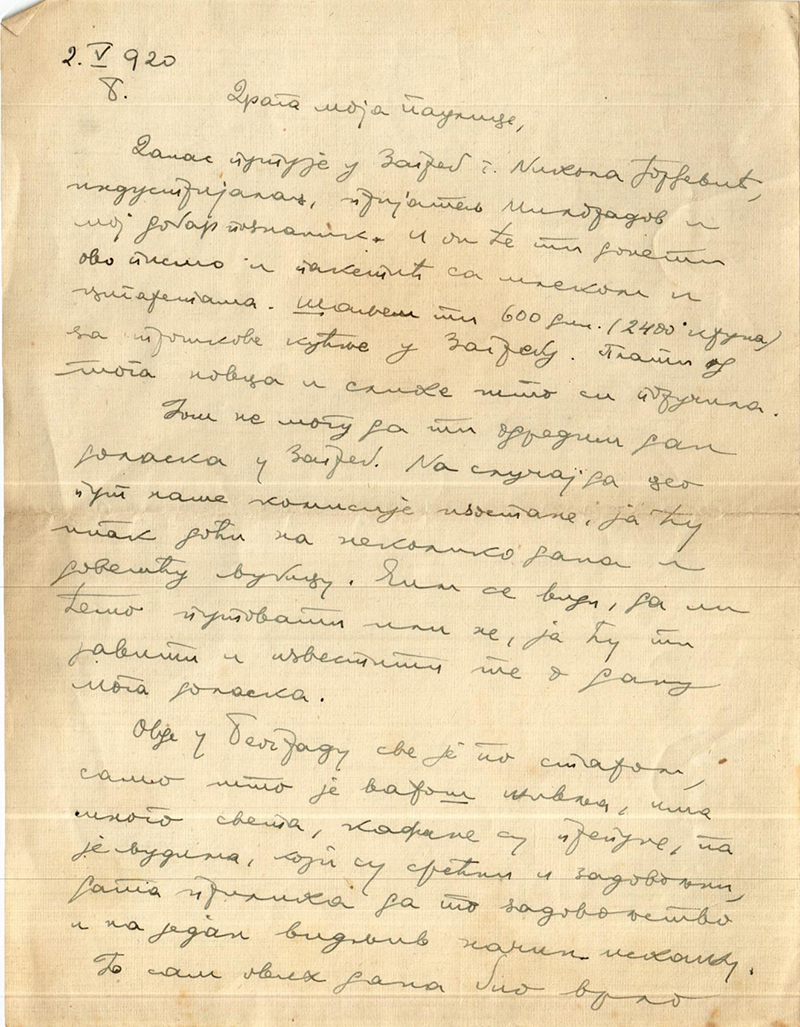 2. V 920
Б.
Драга моја Паулице,
Данас путује у Загреб г. Никола Ђорђевић,
индустријалац, пријатељ Милорадов и
мој добар познаник. И он ће ти донети
ово писмо и пакетић са млеком и
цигаретама. Шаљем ти 600 дин. (2400 круна)
за трошкове кућне у Загребу. Плати од
тога новца и слике што си поручила.
Још не могу да ти одредим дан
доласка у Загреб. На случај да цео
пут наше комисије изостане, ја ћу
ипак доћи на неколико дана и
довешћу Бубицу. Чим се види, да ли
ћемо путовати или не, ја ћу ти
јавити и известити те о дану
мога доласка.
Овде у Београду све је по старом,
само што је варош живља, има
много света, кафане су препуне, па
је људима, који су срећни и задовољни,
дата прилика да то задовољство
и на један видљив начин искажу.
Ја сам ових дана био врло